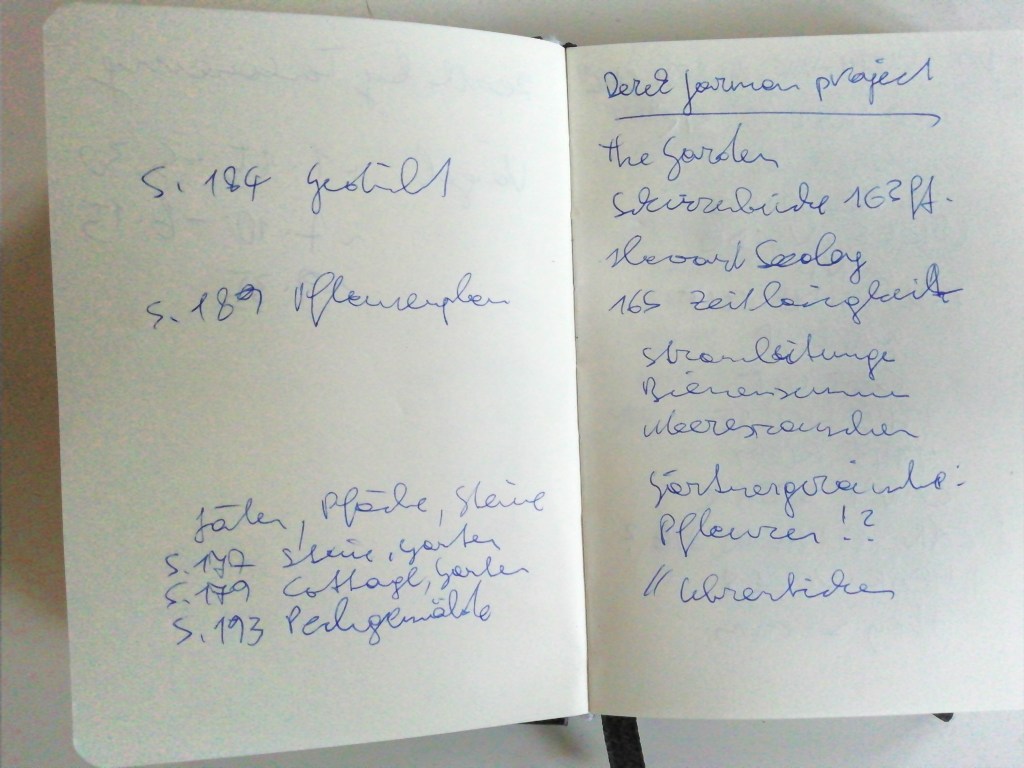 S. 184 Gedicht
S. 189 Pflanzenplan
Jäten, Pfäde, Steine
S. 177 Steine, Garten
S. 179 Cottage, Garten
S. 193 Pechgemälde
Derek Jarman project
the Garden
163 ff.
Howard Sooley
165 Zeitlosigkeit
Stromleitunge
Bienensummen
Meeresrauschen
Gärtnergeräusche:
Pflanzen!?
"